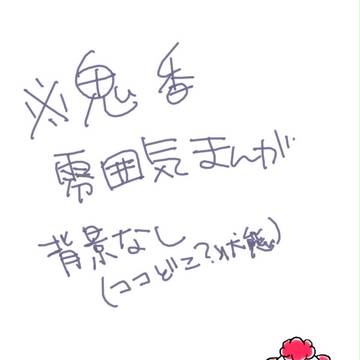 ※鬼香
雰囲気まんが
背景なし
(ココどこ?状態)